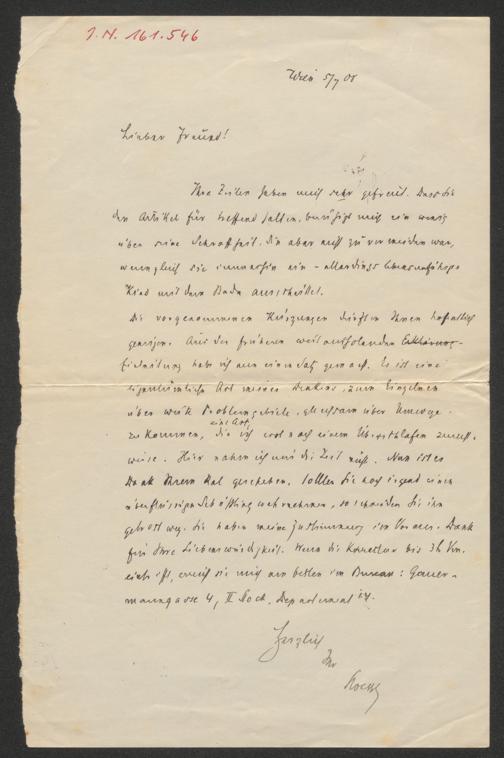 J.N. 161.546
Wien 5/7 08
Lieber Freund!
Ihre Zeilen haben mich sehr gefreut. Dass Sie
den Artikel für treffend halten, beruhigt mich ein wenig
über seine Schroffheit. Die aber nicht zu vermeiden war,
wenngleich sie immerhin ein – allerdings lebensunfähiges
Kind mit dem Bade ausschüttet.
Die vorgenommenen Kürzungen dürften Ihnen hoffentlich
genügen. Aus der früheren weitausholenden
Einleitung habe ich nur einen Satz gemacht. Es ist eine
eigentümliche Art meines Denkens, zum Einzelnen
über weite Problemgebiete, gleichsam über Umwege
zu kommen, eine Art, die ich erst nach einem Überschlafen zurück-
weise. Hier nahm ich mir die Zeit nicht. Nun ist es
Dank Ihrem Rat geschehen. Sollten Sie noch irgend einen
überflüssigen Schößling wahrnehmen, so schneiden Sie ihn
getrost weg. Sie haben meine Zustimmung im Voraus. Dank
für Ihre Liebenswürdigkeit. Wenn die Korrektur bis 3h Nm.
eintrifft, erreicht sie mich am besten im Bureau: Gauer-
manngasse 4, II Stock, Departement
Herzlich
Ihr